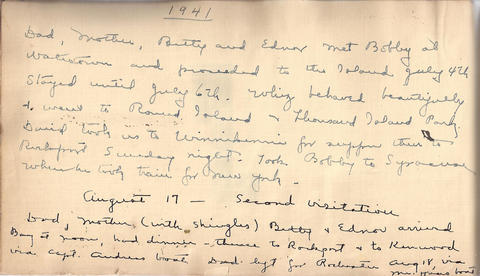 1941
Dad, Mother, Betty and Ednor met Bobby at
Watertown and proceeded to the Island July 4th
Stayed until July 6th. Whiz behaved beautifully
& went to Round Island & Thousand Island Park.
David took us to for supper then to
Rockport Sunday night. Took Bobby to Syracuse
where he took train for New York.
August 17 — Second Visitation
Dad, Mother (with shingles) Betty & Ednor arrived
Bay at noon, had dinner - thence to Rockport & to Kenwood
via Capt. Andress boat. Dad left for Rochester Aug 18, via
boat